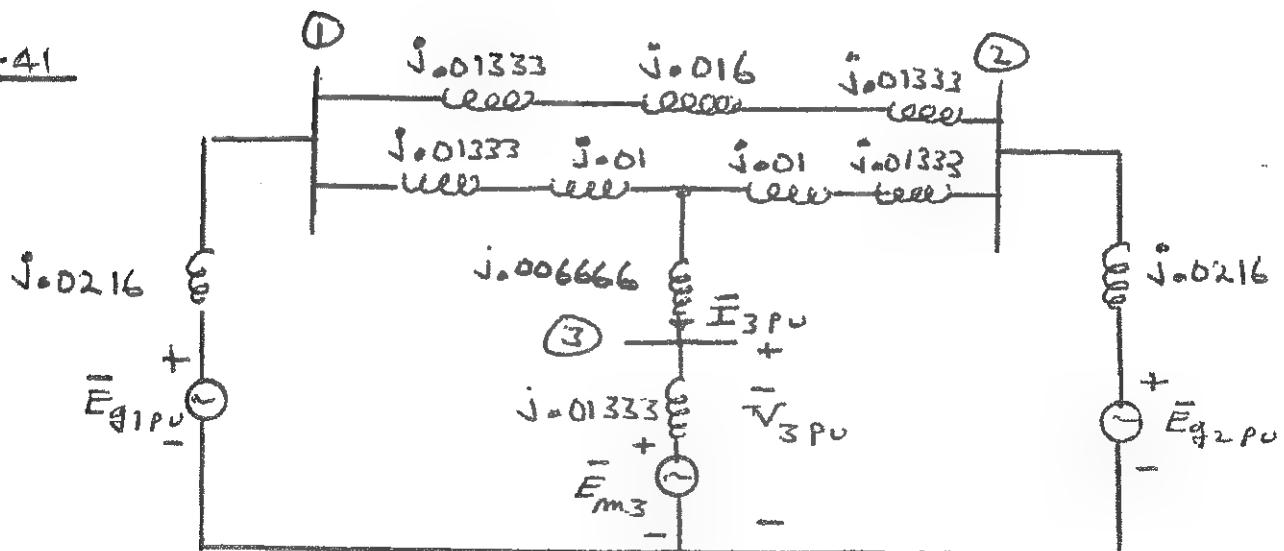 .41
① ②
j.01333 j.016 j.01333
j.01333 j.01 j.01 j.01333
j.0216 j.006666 j.0216
Ī3pu
③
+ +
Ēg1pu j.01333 V̄3pu + Ēg2pu
- + -
Ēm3
- -